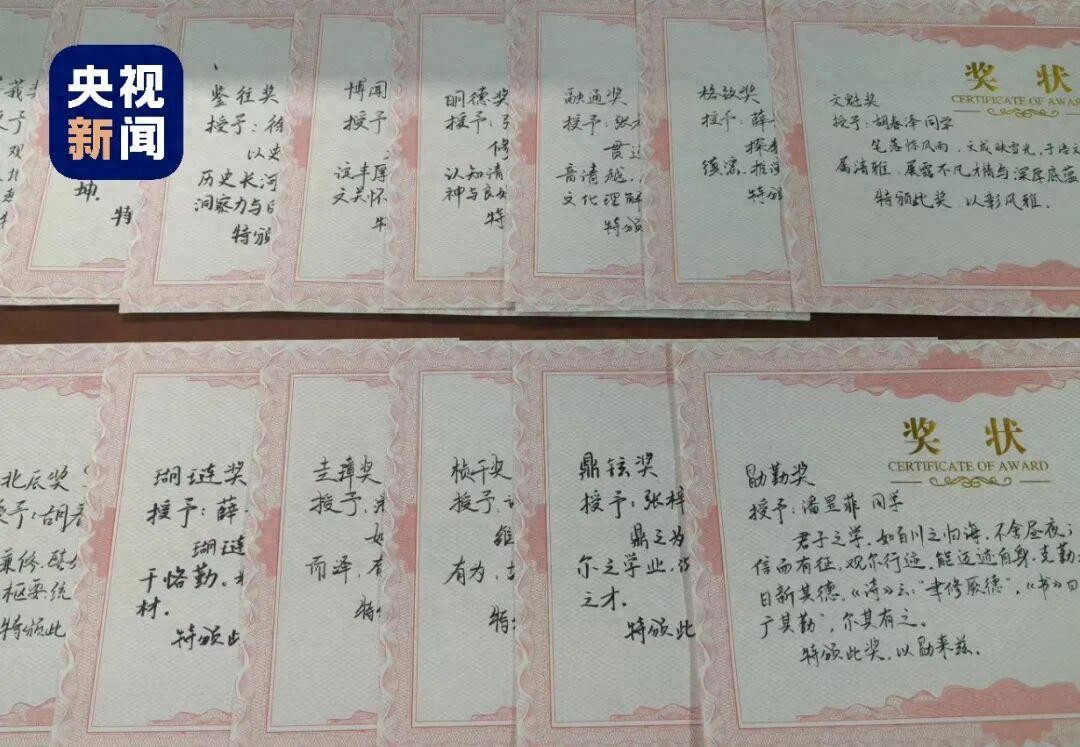 央视
新闻
坤.
特
鉴往奖
授予:徐
以史
历史长河
洞察力与
特颁
博闻
授予
文关怀
明德奖
授予:
修
认知
神与良
特
融通奖
授予:张
贯
音清越
文化理解
特颁
格致奖
授予:薛
探
特颁
奖 状
CERTIFICATE OF AWA
文魁奖
授予:胡春泽同学
笔落惊风雨,文成映雪光,于语文
属清雅,屡露不凡才情与深厚底蕴
特颁此奖,以彰风雅.
北辰奖
授予:胡春
兼修,
枢要统
特颁此
瑚琏奖
授予:薛
瑚琏
干恪勤.
材.
特颁此
圭璋奖
授予:
如
而泽,
特
桢干奖
授予:
有为,
特
鼎铉奖
授予:张梓
鼎之为
尔之学业,
之才.
特颁此
奖 状
CERTIFICATE OF AWARD
勖勤奖
授予:潘昱菲 同学
君子之学,如百川之归海,不舍昼夜;
信而有征,观尔行迹,能迈迹自身,克勤
日新其德,《诗》云:"聿修厥德",《书》曰
于其勤",尔其有之.
特颁此奖,以勖来兹.